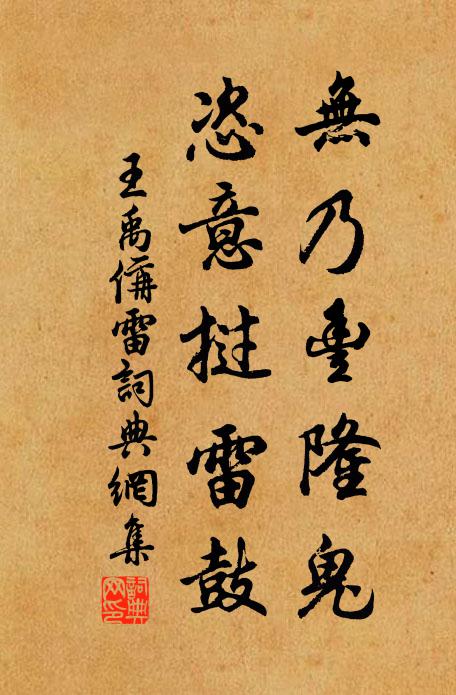 無乃豐隆鬼
恣意撻雷鼓
王禹偁雷詞典網集
詞典
网印